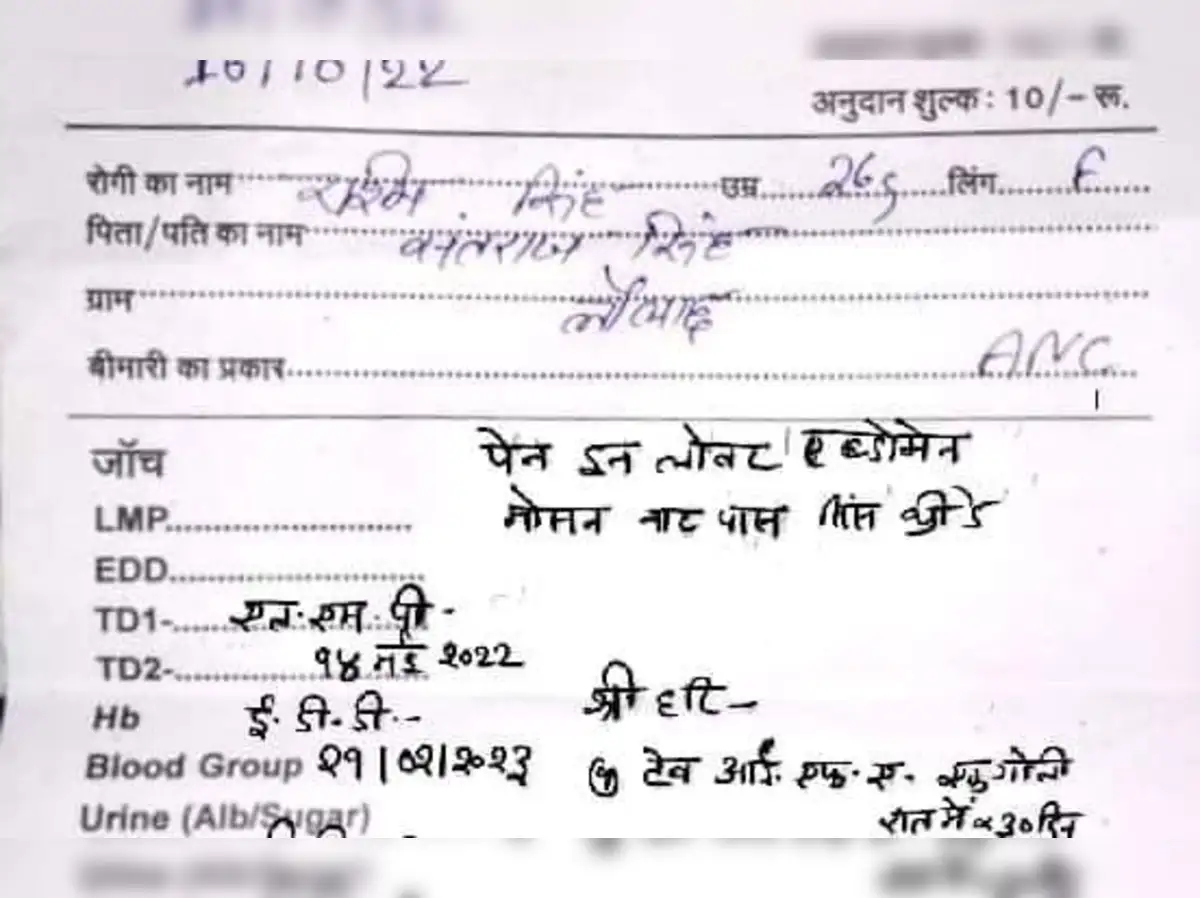 16/10/22
अनुदान शुल्क: 10/- रू.
रोगी का नाम रश्मि सिंह उम्र 26y लिंग F
पिता/पति का नाम सिंह
ग्राम
बीमारी का प्रकार ANC
जॉच
पेन इन लोवर एब्डोमेन
LMP
मोसन नाट पास सिंस थ्री डे
EDD
TD1- एल.एम.पी-
TD2- १४ मई २०२२
Hb ई.डी.डी.-
श्री हरि-
Blood Group २१/०२/२०२३
टेब आई.एफ.ए. एक गोली
Urine (Alb/Sugar)
रात में × ३० दिन